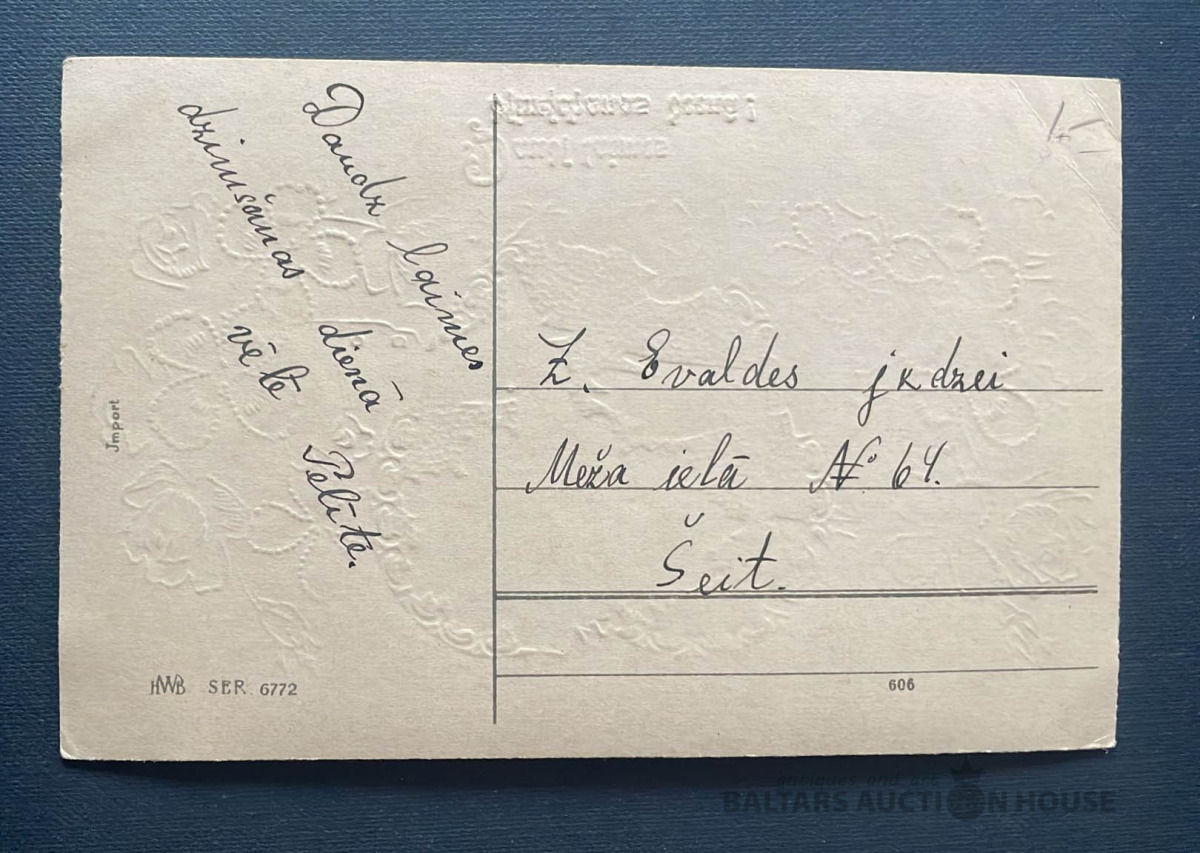 Daudz laimes
dzimšanas dienā
vēlē Pelīte.
Z. Evaldes jkdzei
Meža ielā № 64.
Šeit.
Jmport
HWB SER. 6772
606
antiques and art
BALTARS AUCTION HOUSE